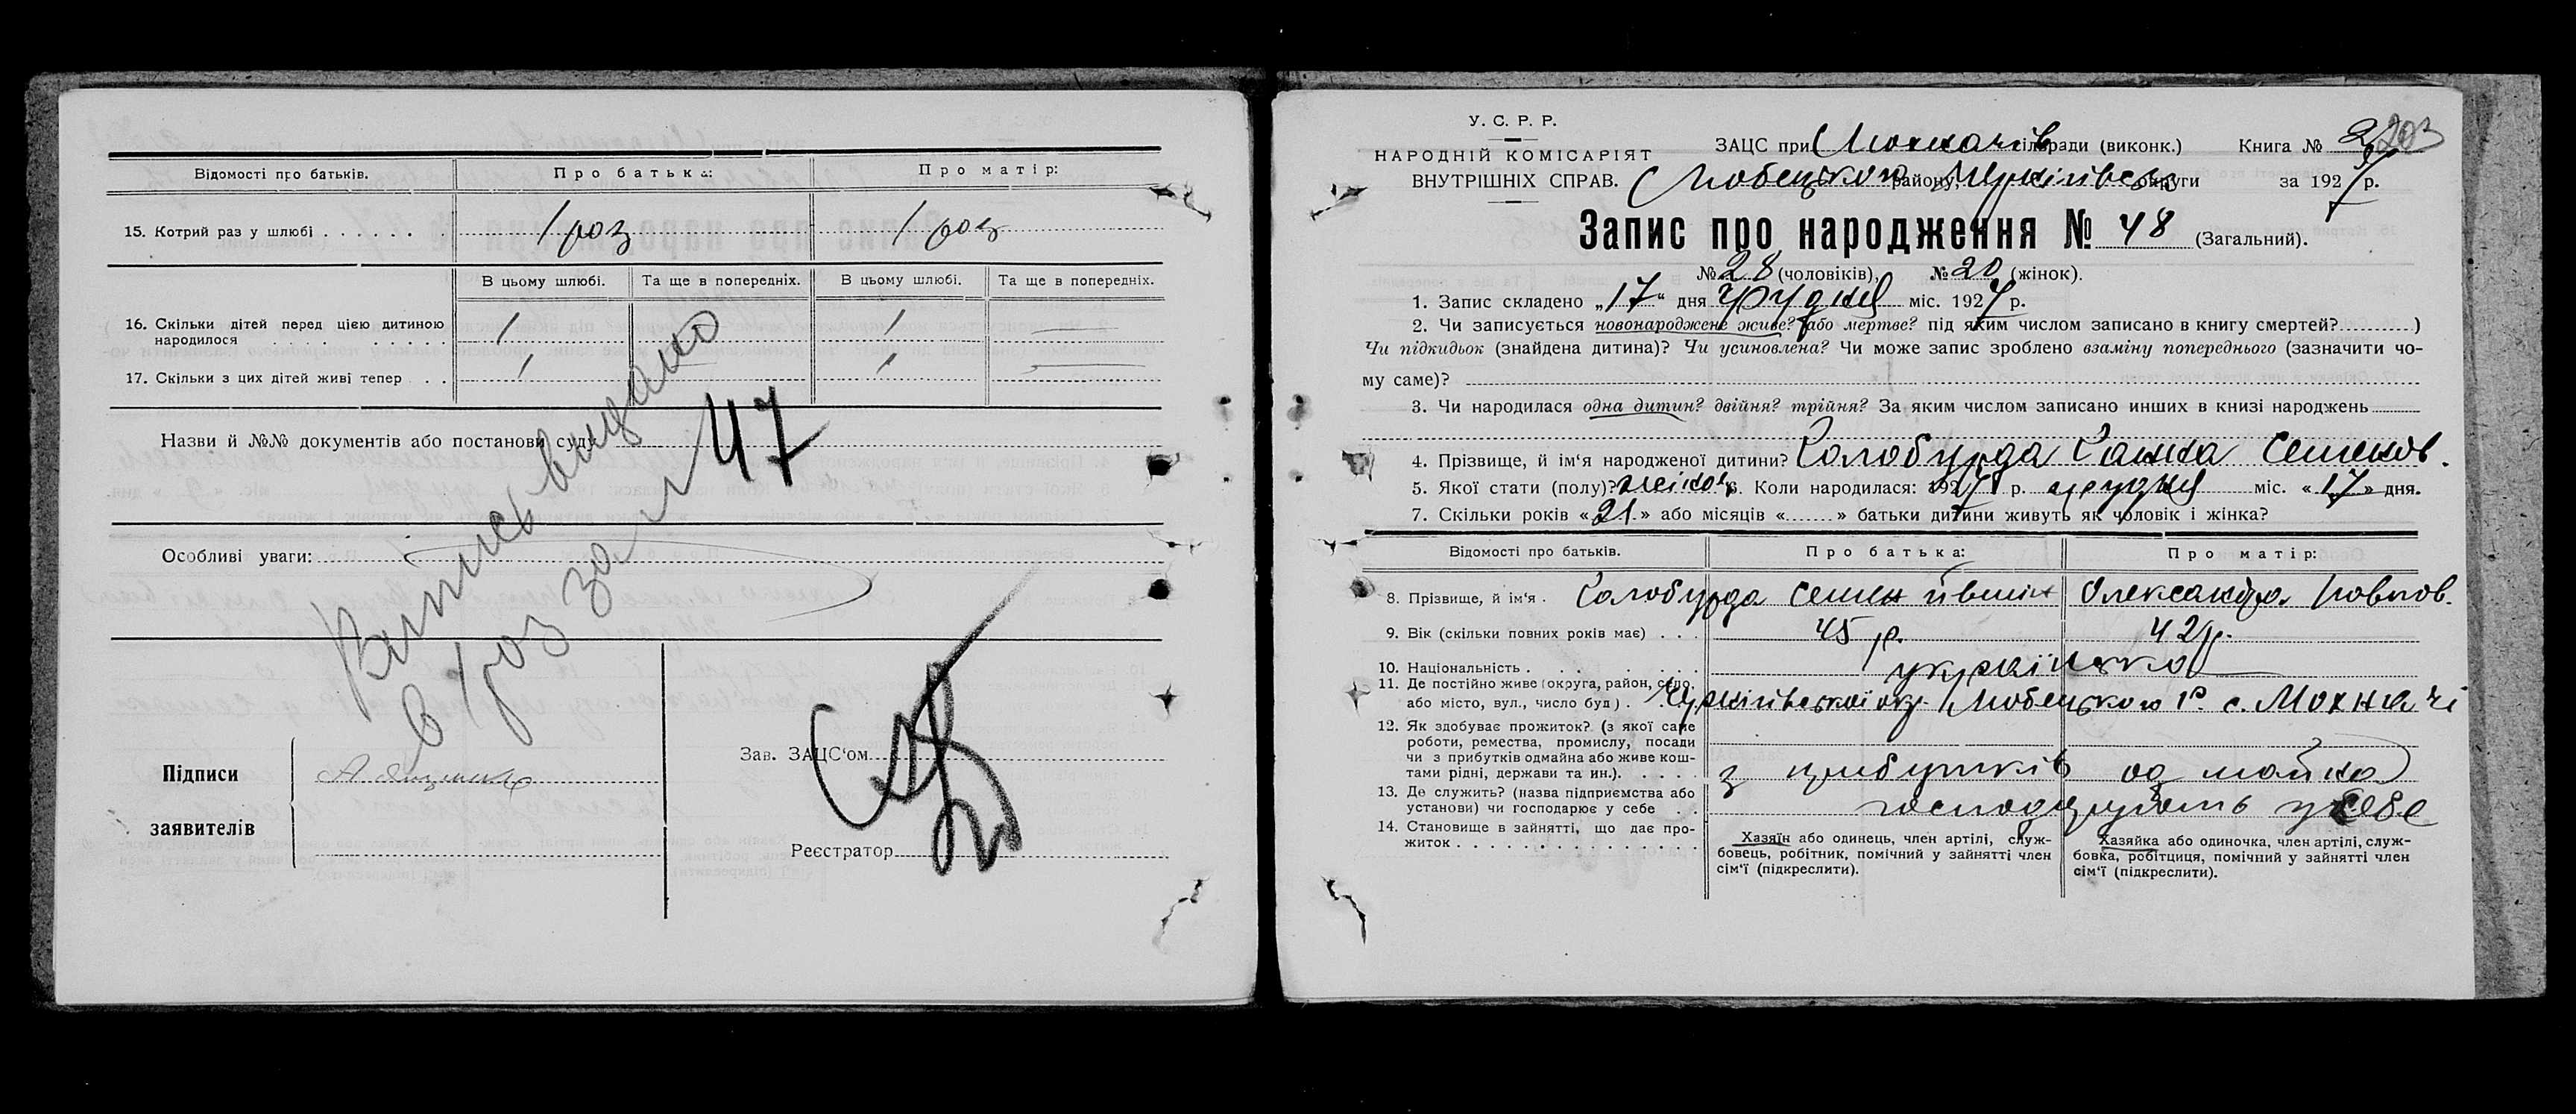 Відомості про батьків. Про батька: Про матір:
15. Котрий раз у шлюбі . . . . . . . 1 раз 1 раз
В цьому шлюбі. Та ще в попередніх. В цьому шлюбі. Та ще в попередніх.
16. Скільки дітей перед цією дитиною
народилося . . . . . . . . . 1 1 —
17. Скільки з цих дітей живі тепер . . 1 1 —
Назви й №№ документів або постанови суду
Особливі уваги:
Випись видано
в 1 раз за 47
Підписи
заявителів
Зав. ЗАЦС‘ом
Реєстратор
У. С. Р. Р.
НАРОДНІЙ КОМІСАРІЯТ
ВНУТРІШНІХ СПРАВ.
ЗАЦС при Мохначів сільради (виконк.) Книга № 2 203
Любецького району, Чернігівськ округи за 1927 р.
Запис про народження № 48 (Загальний).
№ 28 (чоловіків), № 20 (жінок).
1. Запис складено „17“ дня грудня міс. 1927 р.
2. Чи записується новонароджене живе? або мертве? під яким числом записано в книгу смертей?............)
Чи підкидьок (знайдена дитина)? Чи усиновлена? Чи може запис зроблено взаміну попереднього (зазначити чо-
му саме)?
3. Чи народилася одна дитин? двійня? трійня? За яким числом записано инших в книзі народжень
4. Прізвище, й ім‘я народженої дитини? Солобурда Ганна Семенов.
5. Якої стати (полу)? жіноч. 6. Коли народилася: 1927 р. грудня міс. «17» дня.
7. Скільки років «21» або місяців «.......» батьки дитини живуть як чоловік і жінка?
Відомості про батьків. Про батька: Про матір:
8. Прізвище, й ім‘я . Солобурда Семен Олександра Павлов.
9. Вік (скільки повних років має) . . . 45 р. 42 р.
10. Національність . . . . . . . українська
11. Де постійно живе (округа, район, село,
або місто, вул., число буд) . . Чернігівської окр. Любецького р. с. Мохначі
12. Як здобуває прожиток? (з якої саме
роботи, ремества, промислу, посади
чи з прибутків одмайна або живе кош-
тами рідні, держави та ин.). . . . . з прибутків од майна
13. Де служить? (назва підприємства або
установи) чи господарює у себе . . господарують у себе
14. Становище в зайнятті, що дає про-
житок . . . . . . . . . . . . . . .
Хазяїн або одинець, член артілі, служ-
бовець, робітник, помічний у зайнятті член
сім‘ї (підкреслити).
Хазяйка або одиночка, член артілі, служ-
бовка, робітциця, помічний у зайнятті член
сім‘ї (підкреслити).